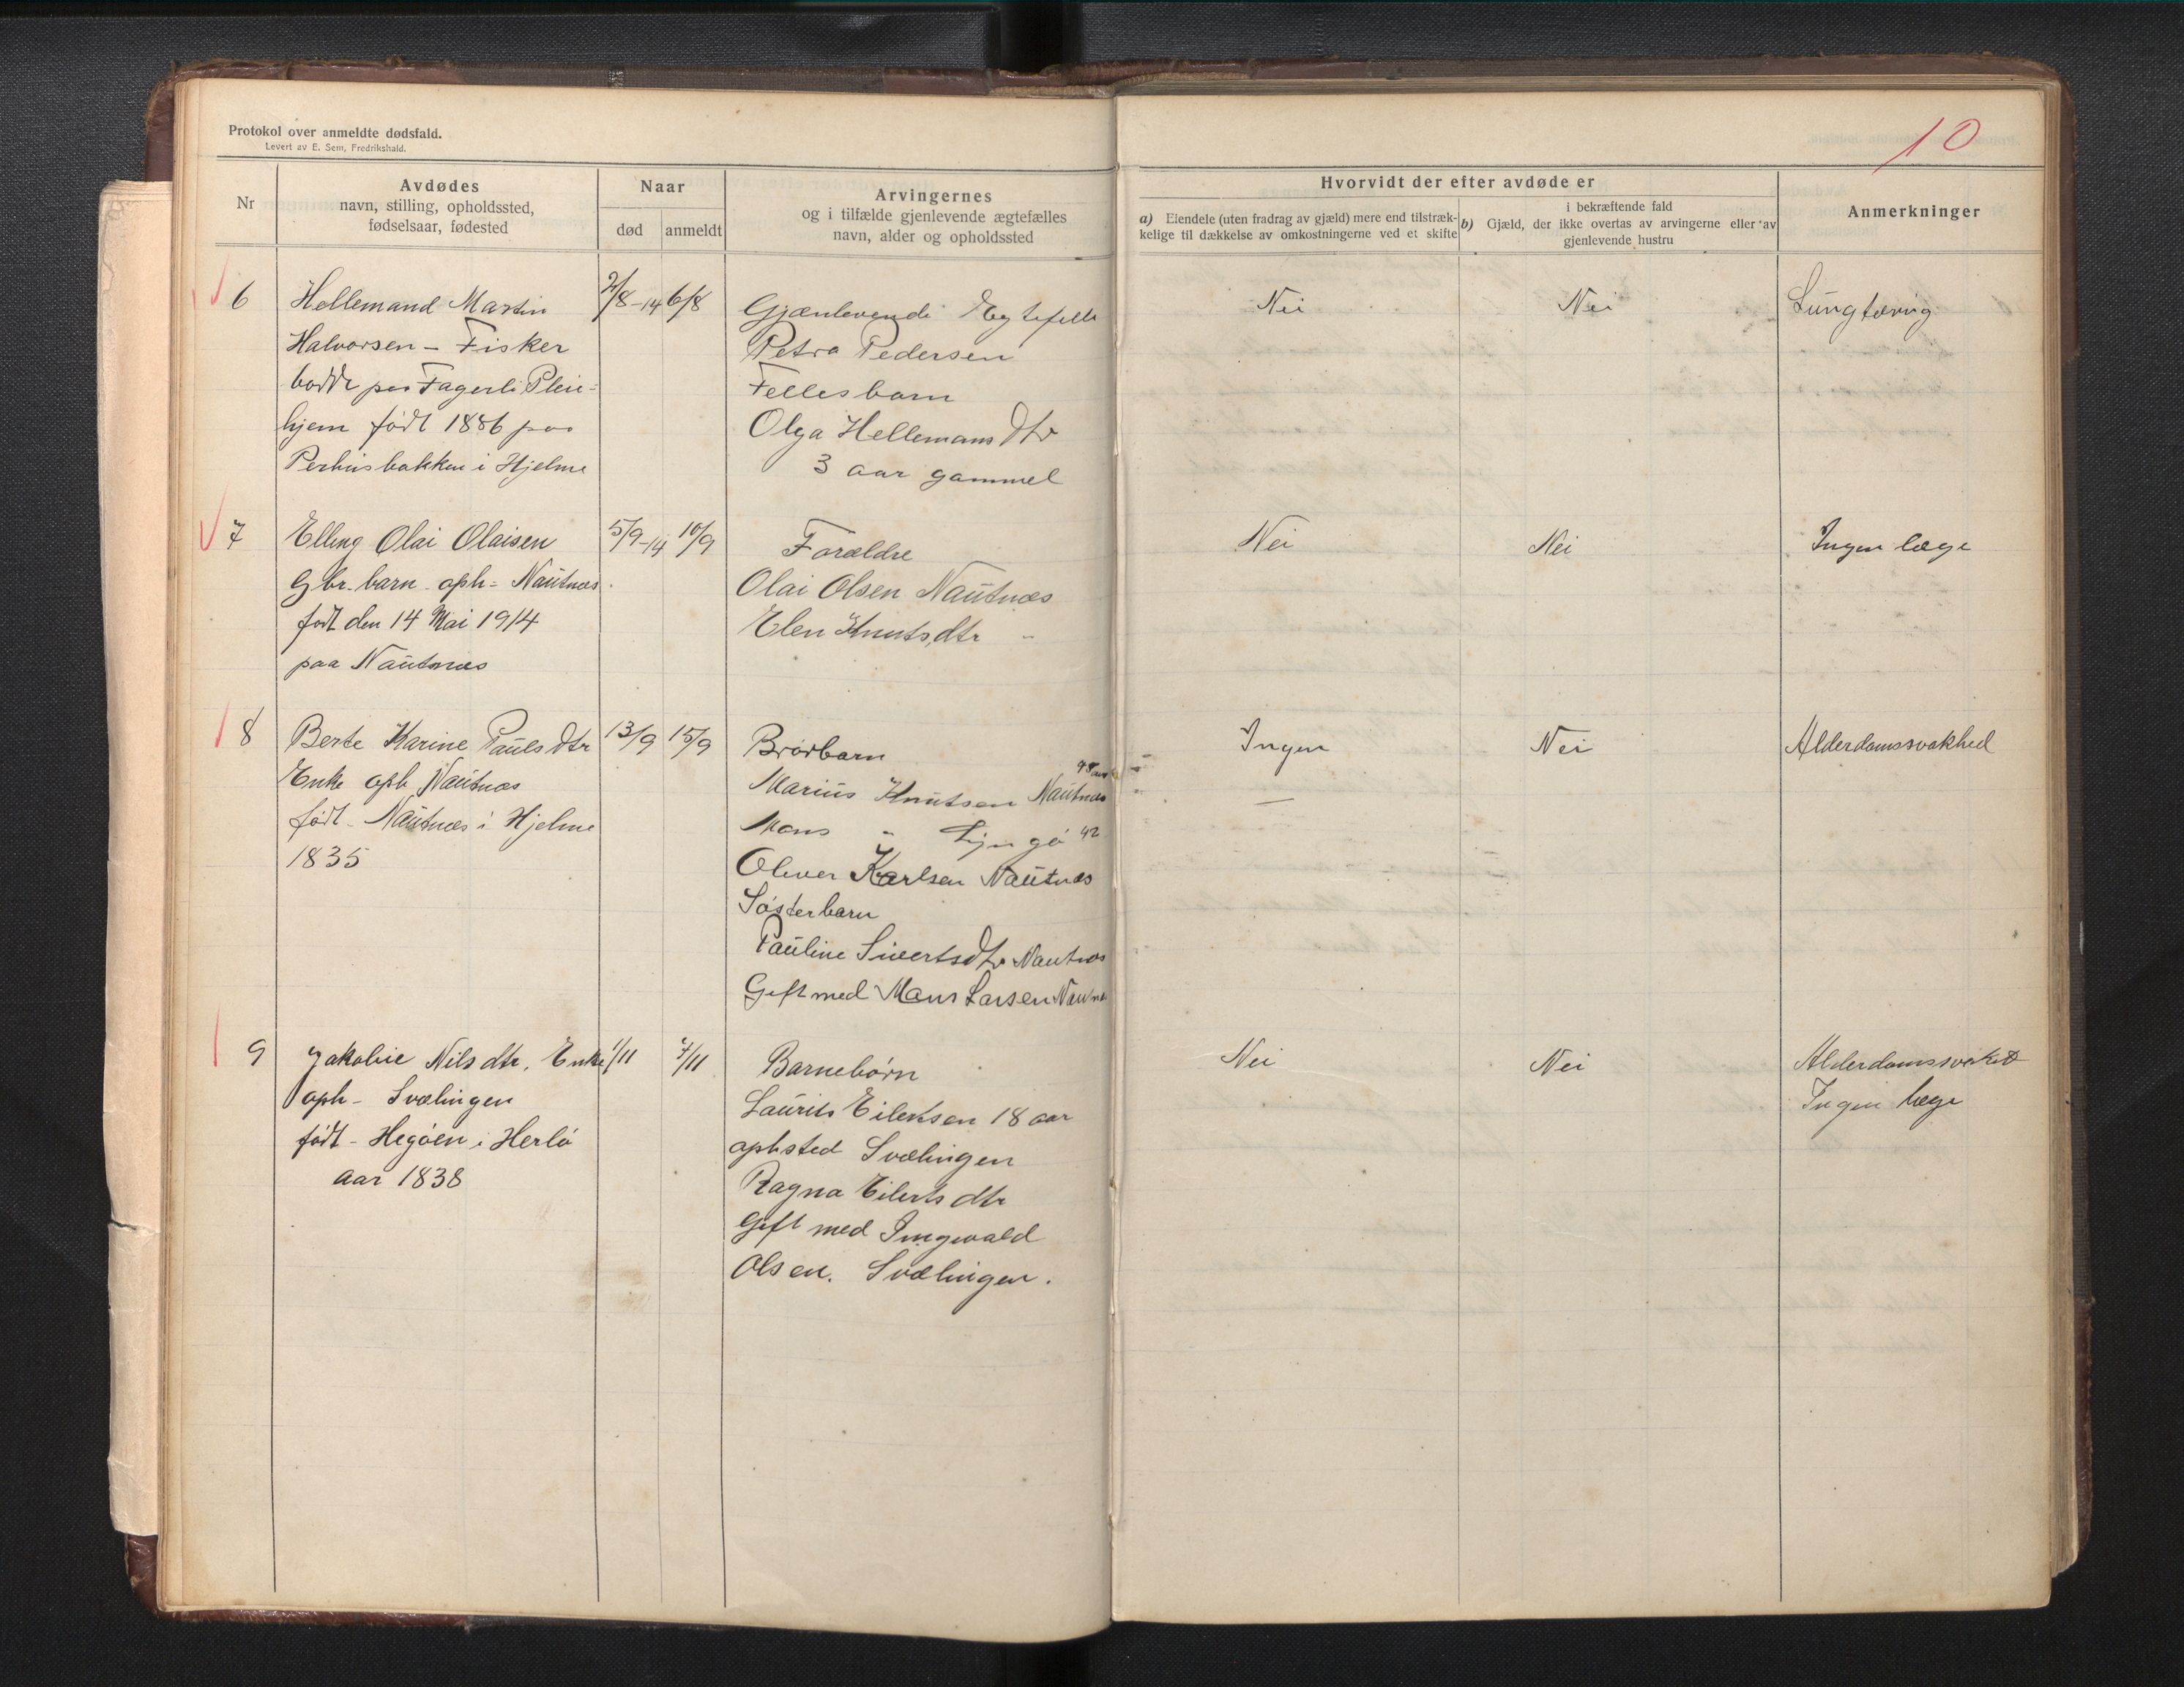 Protokol over anmeldte dødsfald.
Levert av E. Sem, Fredrikshald.
10
Nr
Avdødes
navn, stilling, opholdssted,
fødselsaar, fødested
Naar
død
anmeldt
Arvingernes
og i tilfælde gjenlevende ægtefælles
navn, alder og opholdssted
Hvorvidt der efter avdøde er
a) Eiendele (uten fradrag av gjæld) mere end tilstræk-
kelige til dækkelse av omkostningerne ved et skifte
i bekræftende fald
b) Gjæld, der ikke overtas av arvingerne eller av
gjenlevende hustru
Anmerkninger
6
Hellemand Martin
Halvorsen - Fisker
bodde paa Fagerli Pleie-
hjem født 1886 paa
Perhusbakken i Hjelme
2/8-14
6/8
Gjænlevende Egtefelle
Petra Pedersen
Fellesbarn
Olga Hellemans Dtr
3 aar gammel
Nei
Nei
Lungtæring
7
Elling Olai Olaisen
Gbr. barn oph- Nautnæs
født den 14 Mai 1914
paa Nautnæs
5/9-14
10/9
Forældre
Olai Olsen Nautnæs
Elen Knutsdtr -
Nei
Nei
Ingen læge
8
Berte Karine Pauls Dtr
Enke oph Nautnæs
født - Nautnæs i Hjelme
1835
13/9
15/9
Brørbarn
48 aar
Marius Knutsen Nautnæs
Mons " Lyngø 42
Oliver Karlsen Nautnæs
Søsterbarn
Pauline Sivertsdtr Nautnæs
Gift med Mons Larsen Nautnæs
Ingen
Nei
Alderdomssvakhed
9
Jakobie Nilsdtr. Enke
oph- Svælingen
født - Hegøen i Herlø
aar 1838
1/11
7/11
Barnebørn
Laurits Eilertsen 18 aar
ophsted Svælingen
Ragna Eilerts dtr
Gift med Ingvald
Olsen. Svælingen.
Nei
Nei
Alderdomssvakhed
Ingen læge